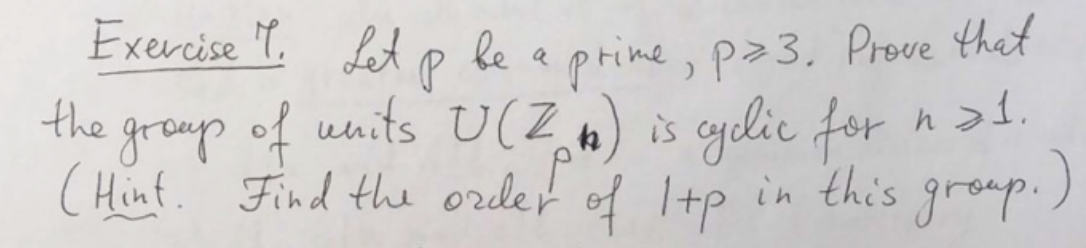 Exercise 7. Let p be a prime, p⩾3. Prove that
the group of units U(ℤ_{pⁿ}) is cyclic for n⩾1.
(Hint. Find the order of 1+p in this group.)